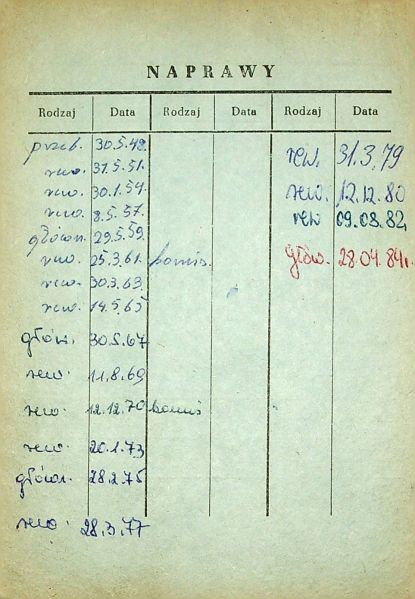 NAPRAWY
Rodzaj Data Rodzaj Data Rodzaj Data
przeb. 30.5.49.
rew. 31.5.51.
rew. 30.1.54.
rew. 8.5.57.
główn. 29.5.59.
rew. 25.3.61.
rew. 30.3.63.
rew. 14.5.65
główn. 30.5.67
rew. 11.8.69
rew. 12.12.70
rew. 20.1.73
główn. 28.2.75
rew. 28.3.77
rew. 31.3.79
rew. 12.12.80
rew 09.08.82
główn. 28.04.84r.